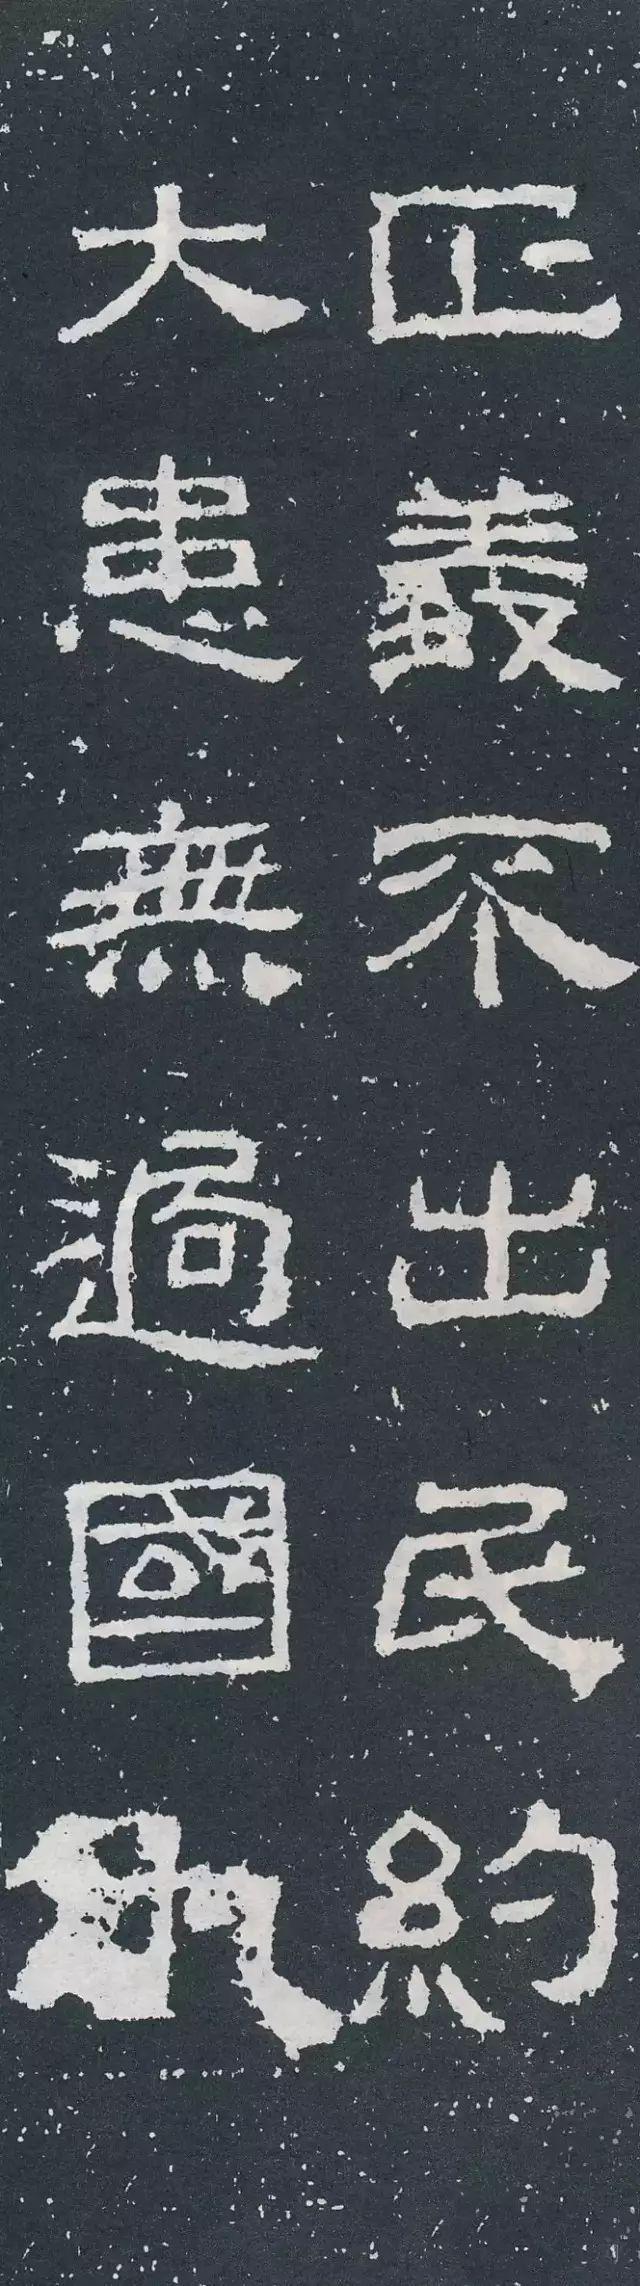 正義不出民約
大患無過國